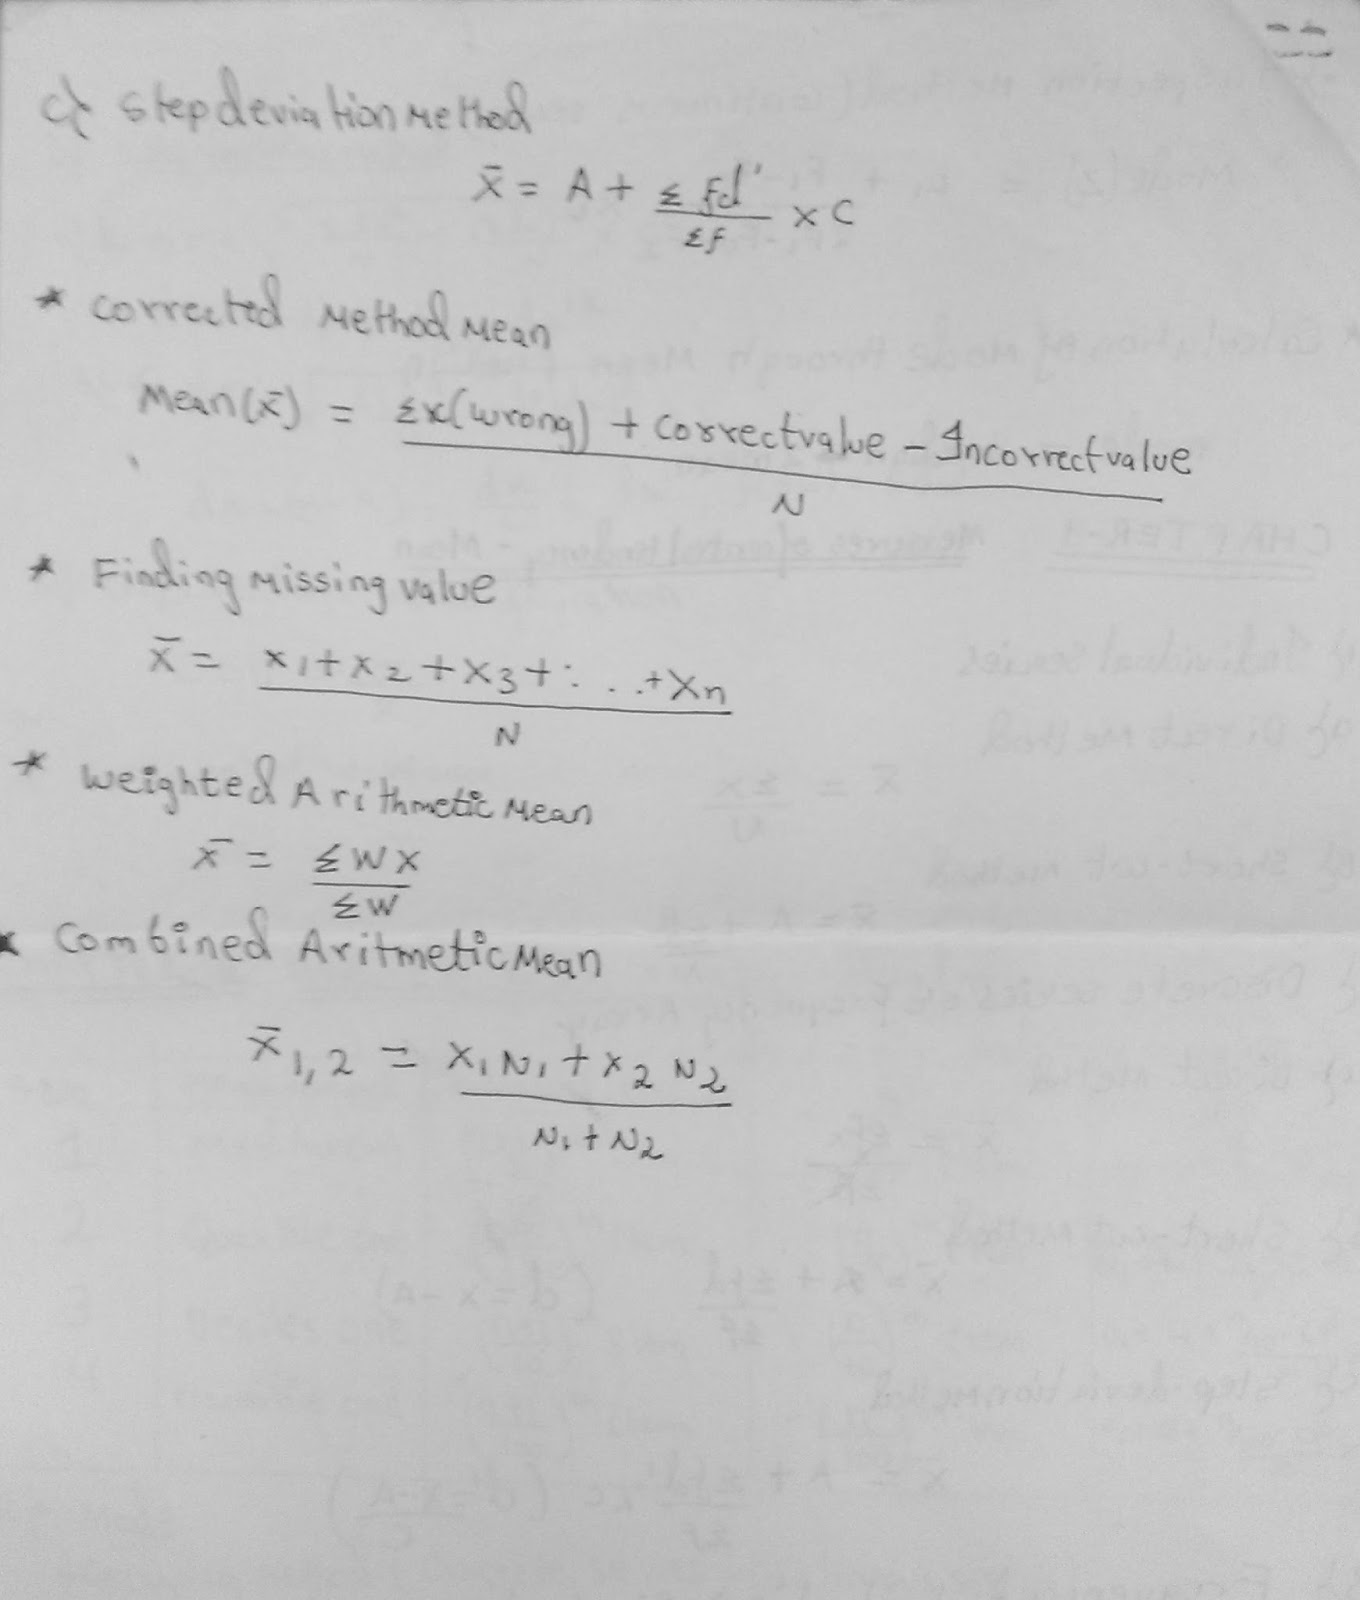 c) step deviation Method
x̄ = A + Σfd'/Σf × C
* corrected Method Mean
Mean(x̄) = Σx(wrong) + correct value - Incorrect value / N
* Finding Missing value
x̄ = x1 + x2 + x3 + ... + xn / N
* Weighted Arithmetic Mean
x̄ = ΣWX / ΣW
* Combined Aritmetic Mean
x̄1,2 = x1 N1 + x2 N2 / N1 + N2